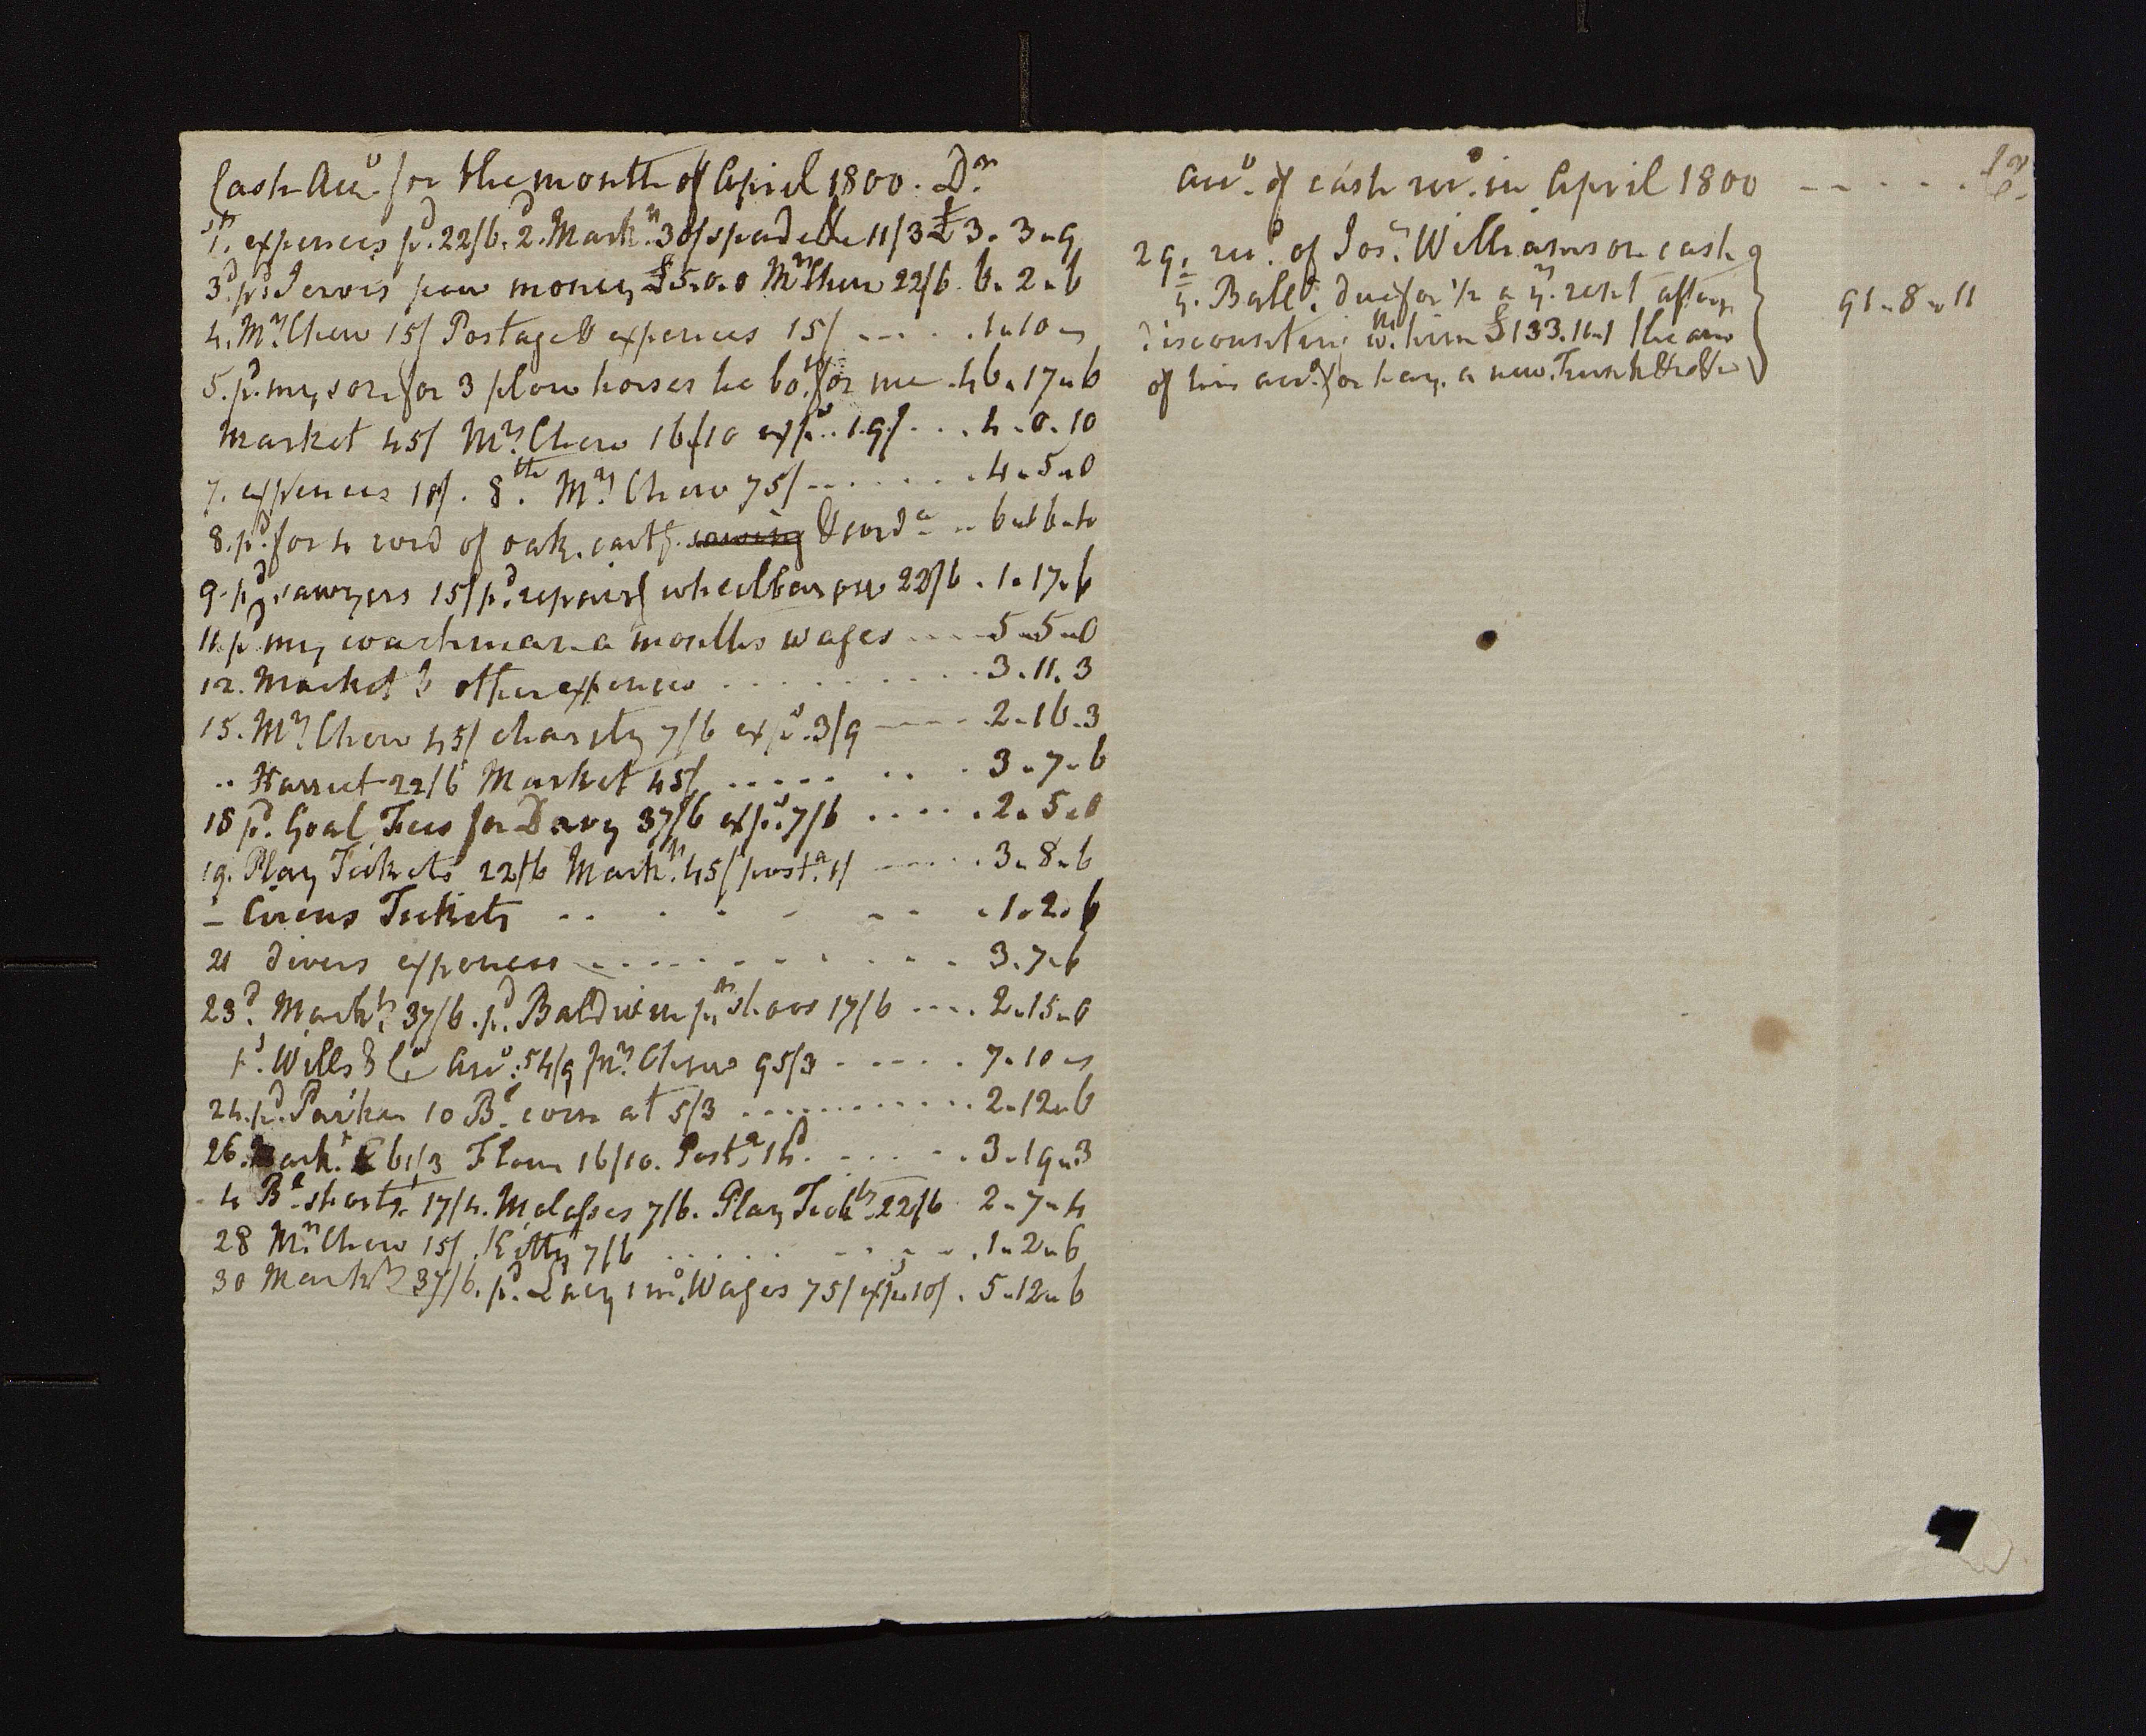 Cash Acco. for the month of April 1800. Dr.
1st. expences pd. 22/6. 2d. Markt. 30/ spade &c 11/3 £ 3. 3. 9
3d. pd. Jervis pew money £5.0.0 Mrs Chew 22/6. 6. 2. 6
4. Mrs. Chew 15/ Postage & expences 15/ ... . 1. 10 -
5. pd. my son for 3 plow horses he bot. for me . 46. 17. 6
Market 45/ Mrs. Chew 16/10 exps. 19/ . . . 4. 0. 10
7. expences 10/. 8th. Mrs. Chew 75/ ...... 4. 5. 0
8. pd. for 4 cord of oak. cartg. sawing & corda .. 6. 16. 4
9. pd. sawyers 15/ pd. repairg wheelbarrow 22/6 . 1. 17. 6
11. pd my coachman a months wages .... 5. 5. 0
12. Market & other expences .......... 3. 11. 3
15. Mrs. Chew 45/ charity 7/6 exps. 3/9 ---- 2. 16. 3
.. Harriet 22/6 Market 45/ ..... .. . 3. 7. 6
18 pd. Goal Fees for Davy 37/6 exps. 7/6 ..... 2. 5. 0
19. Play Tickets 22/6 Markt. 45/ posta. 1/ ---- 3. 8. 6
- Circus Tickets .. . . - - - . 1. 2. 6
21 divers expences ............ 3. 7. 6
23d. Markt. 37/6. pd. Baldwin pr shoos 17/6 .... 2. 15. 0
pd. Wills & Co Acco. 54/9 Mrs. Chew 95/3 ...... 7. 10 -
24. pd. Parker 10 Bs. corn at 5/3 ............ 2. 12. 6
26. Markt. 61/3 Flour 16/10. Posta. 14d. ..... 3. 19. 3
4 Bs. shorts 17/4. Molasses 7/6. Play Tickts. 22/6 2. 7. 4
28 Mrs. Chew 15/. Kitty 7/6 ...... - . - . 1. 2. 6
30 Markt. 37/6. pd. Lucy 1 mo. Wages 75/ exps. 10/. 5. 12. 6
Acco. of cash recd. in April 1800 -- . . . . Cr.
29. recd. of Josa. Williamson cash
y. Balle. due for 1/2 a yrs. rent after
discounting wth. him £133.11.1 the amo
of his acco. for hay. a new Trunk &c &c } 91. 8. 11